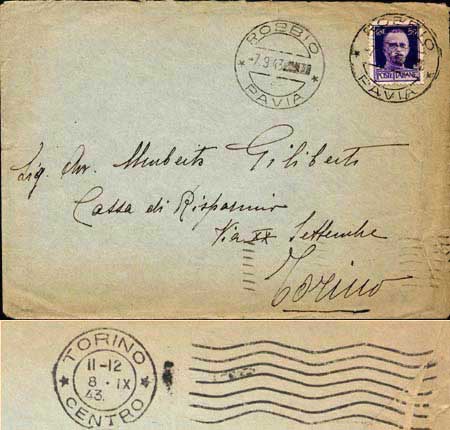 ROBBIO
-7.9.43
PAVIA
ROBBIO
PAVIA
POSTE ITALIANE
Sig. Avv. Umberto Giliberti
Cassa di Risparmio
Via XX Settembre
Torino
TORINO
11-12
8 · IX
43.
CENTRO